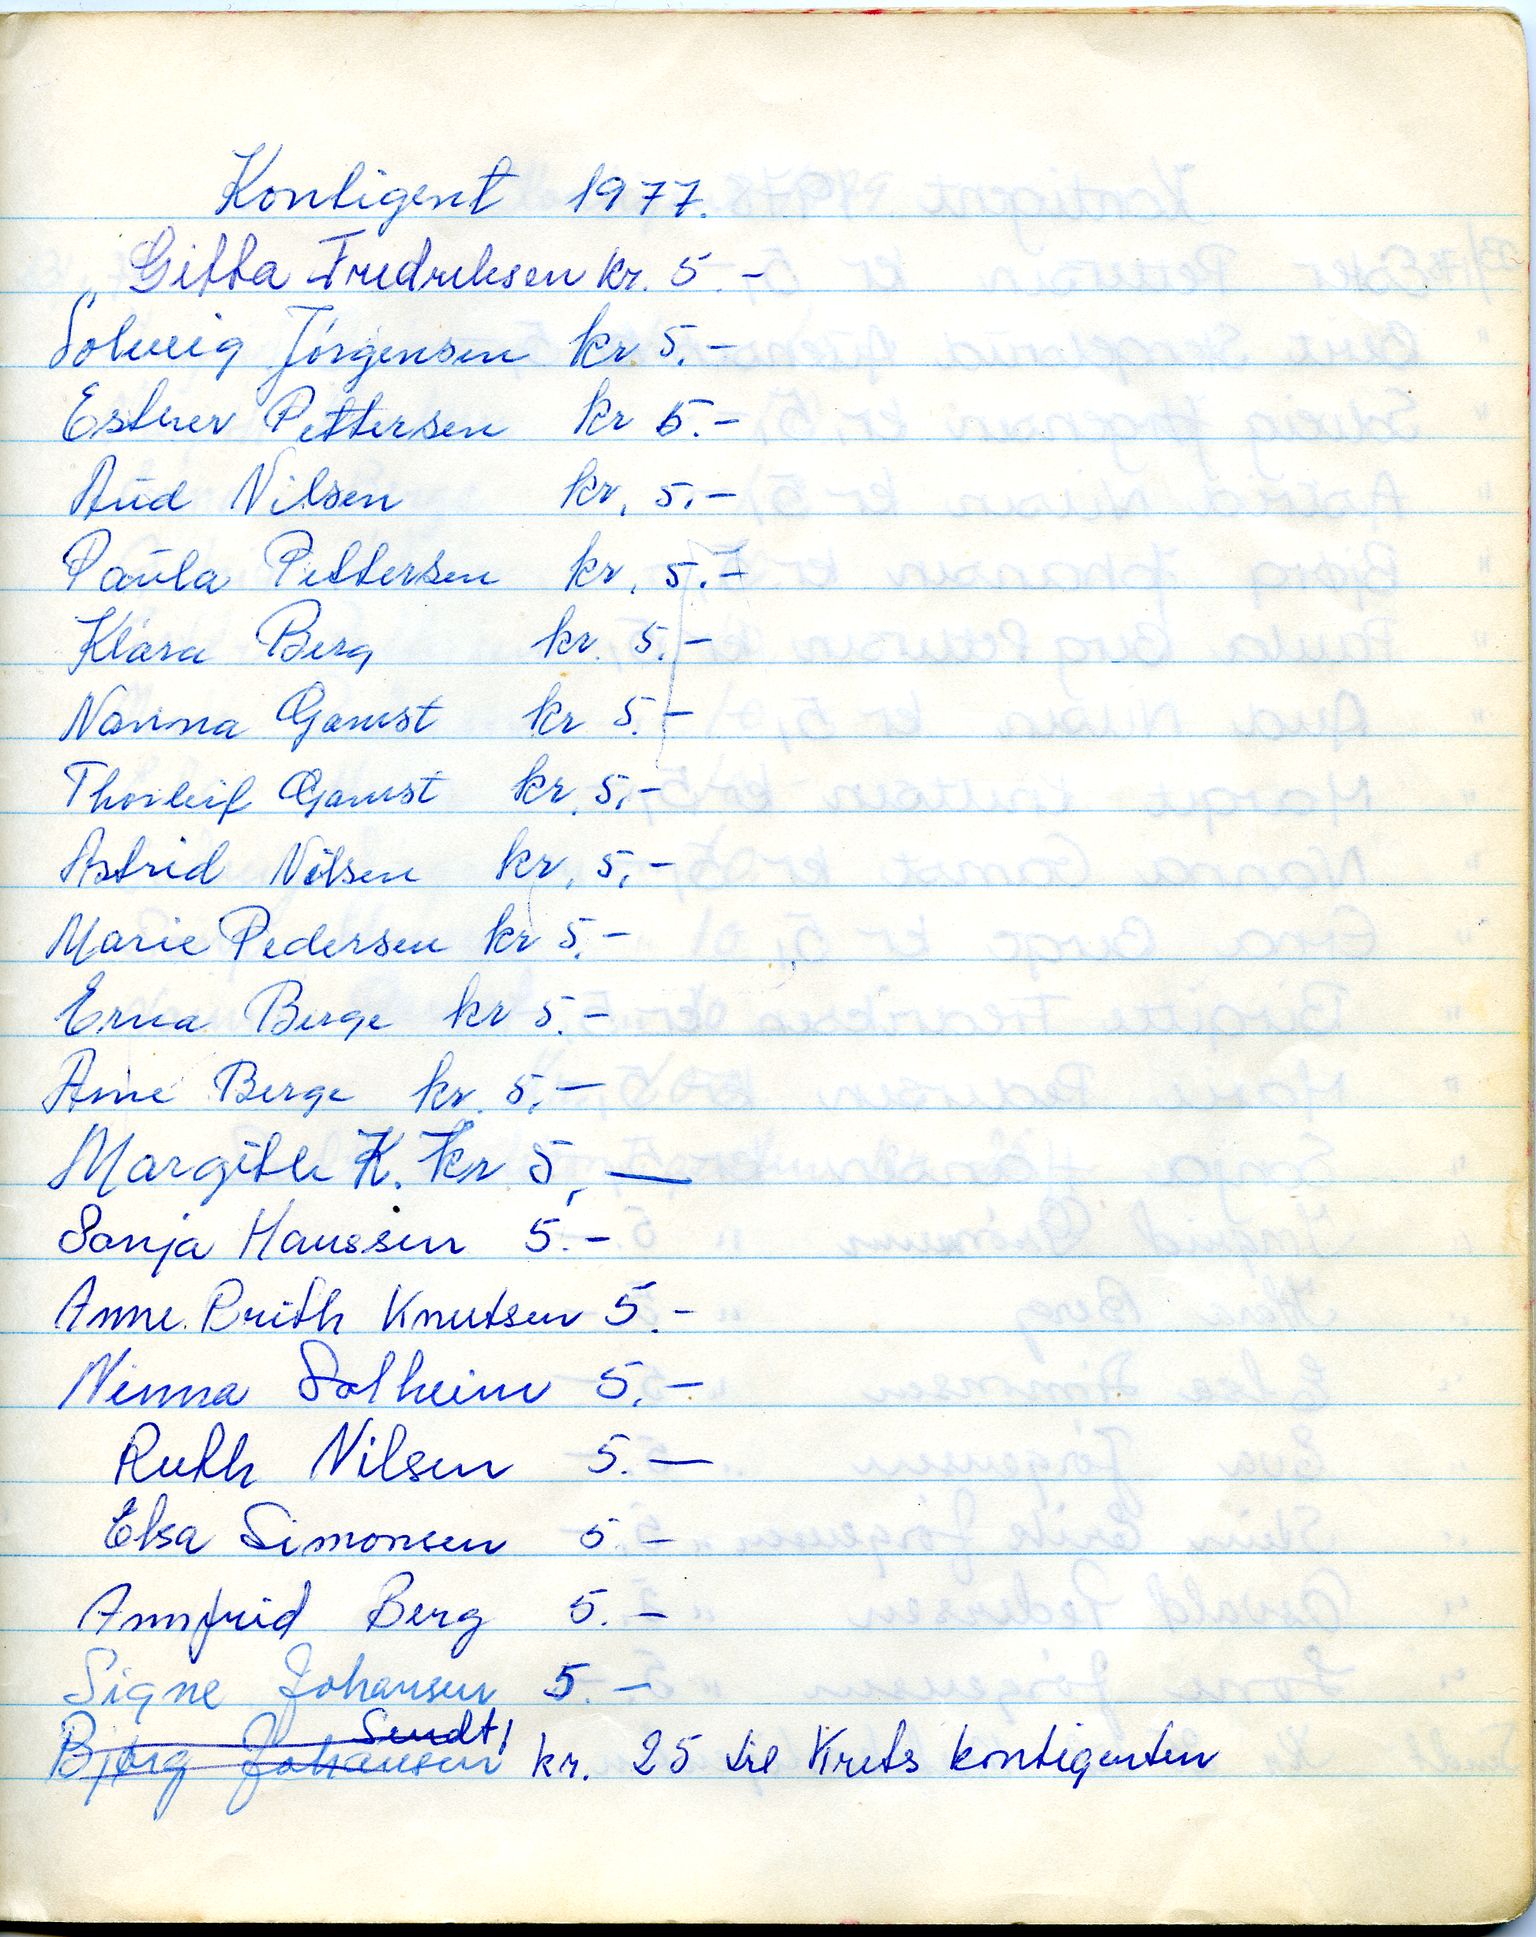 Kontigent 1977.
Gitta Fredriksen kr. 5.-
Solveig Jörgensen kr 5.-
Esther Pettersen kr 5.-
Aud Nilsen kr. 5.-
Paula Pettersen kr. 5.-
Klara Berg kr. 5.-
Nanna Gamst kr 5.-
Thorleif Gamst kr. 5.-
Astrid Nilsen kr. 5.-
Marie Pedersen kr 5.-
Erna Berge kr 5.-
Arne Berge kr. 5.-
Margith K. kr 5,-
Sonja Hanssen 5.-
Anne. Brith Knutsen 5.-
Ninna Solheim 5.-
Ruth Nilsen 5.-
Elsa Simonsen 5.-
Annfrid Berg 5.-
Signe Johansen 5.-
Sendt!
Bjørg Johansen kr. 25 til Krets kontigenten